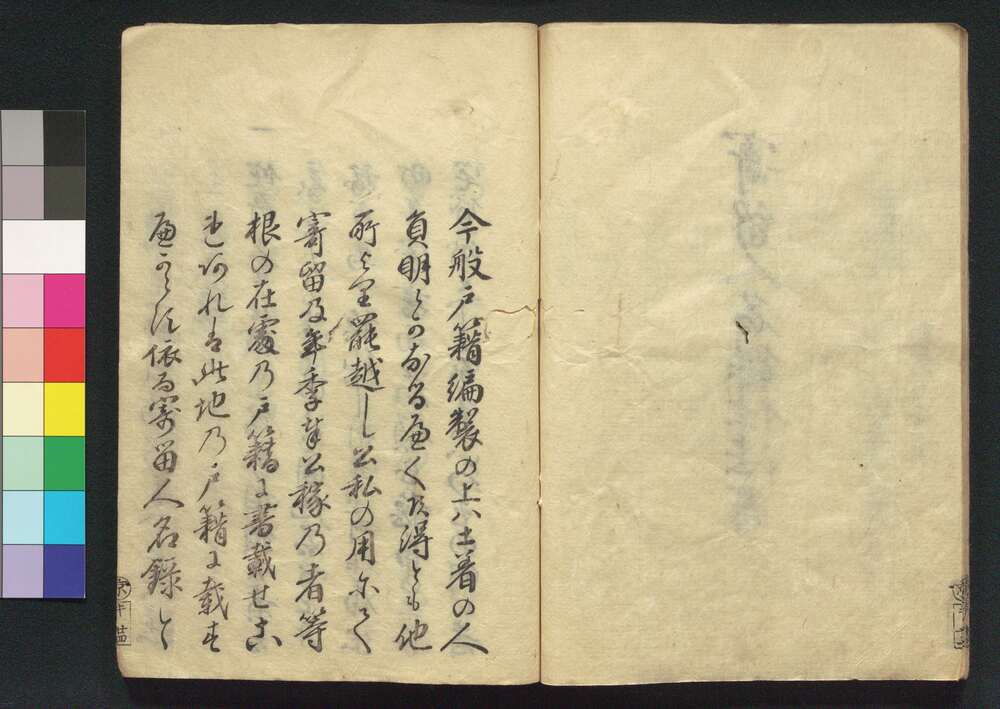 今般戸籍編製の上ハ土着の人
員明らかなるへく候得とも他
所より罷越し公私の用にて
寄留及年季奉公稼乃者等
根の在處乃戸籍に書載せこ
れあれは此地乃戸籍に載す
へからす依而寄留人名録と